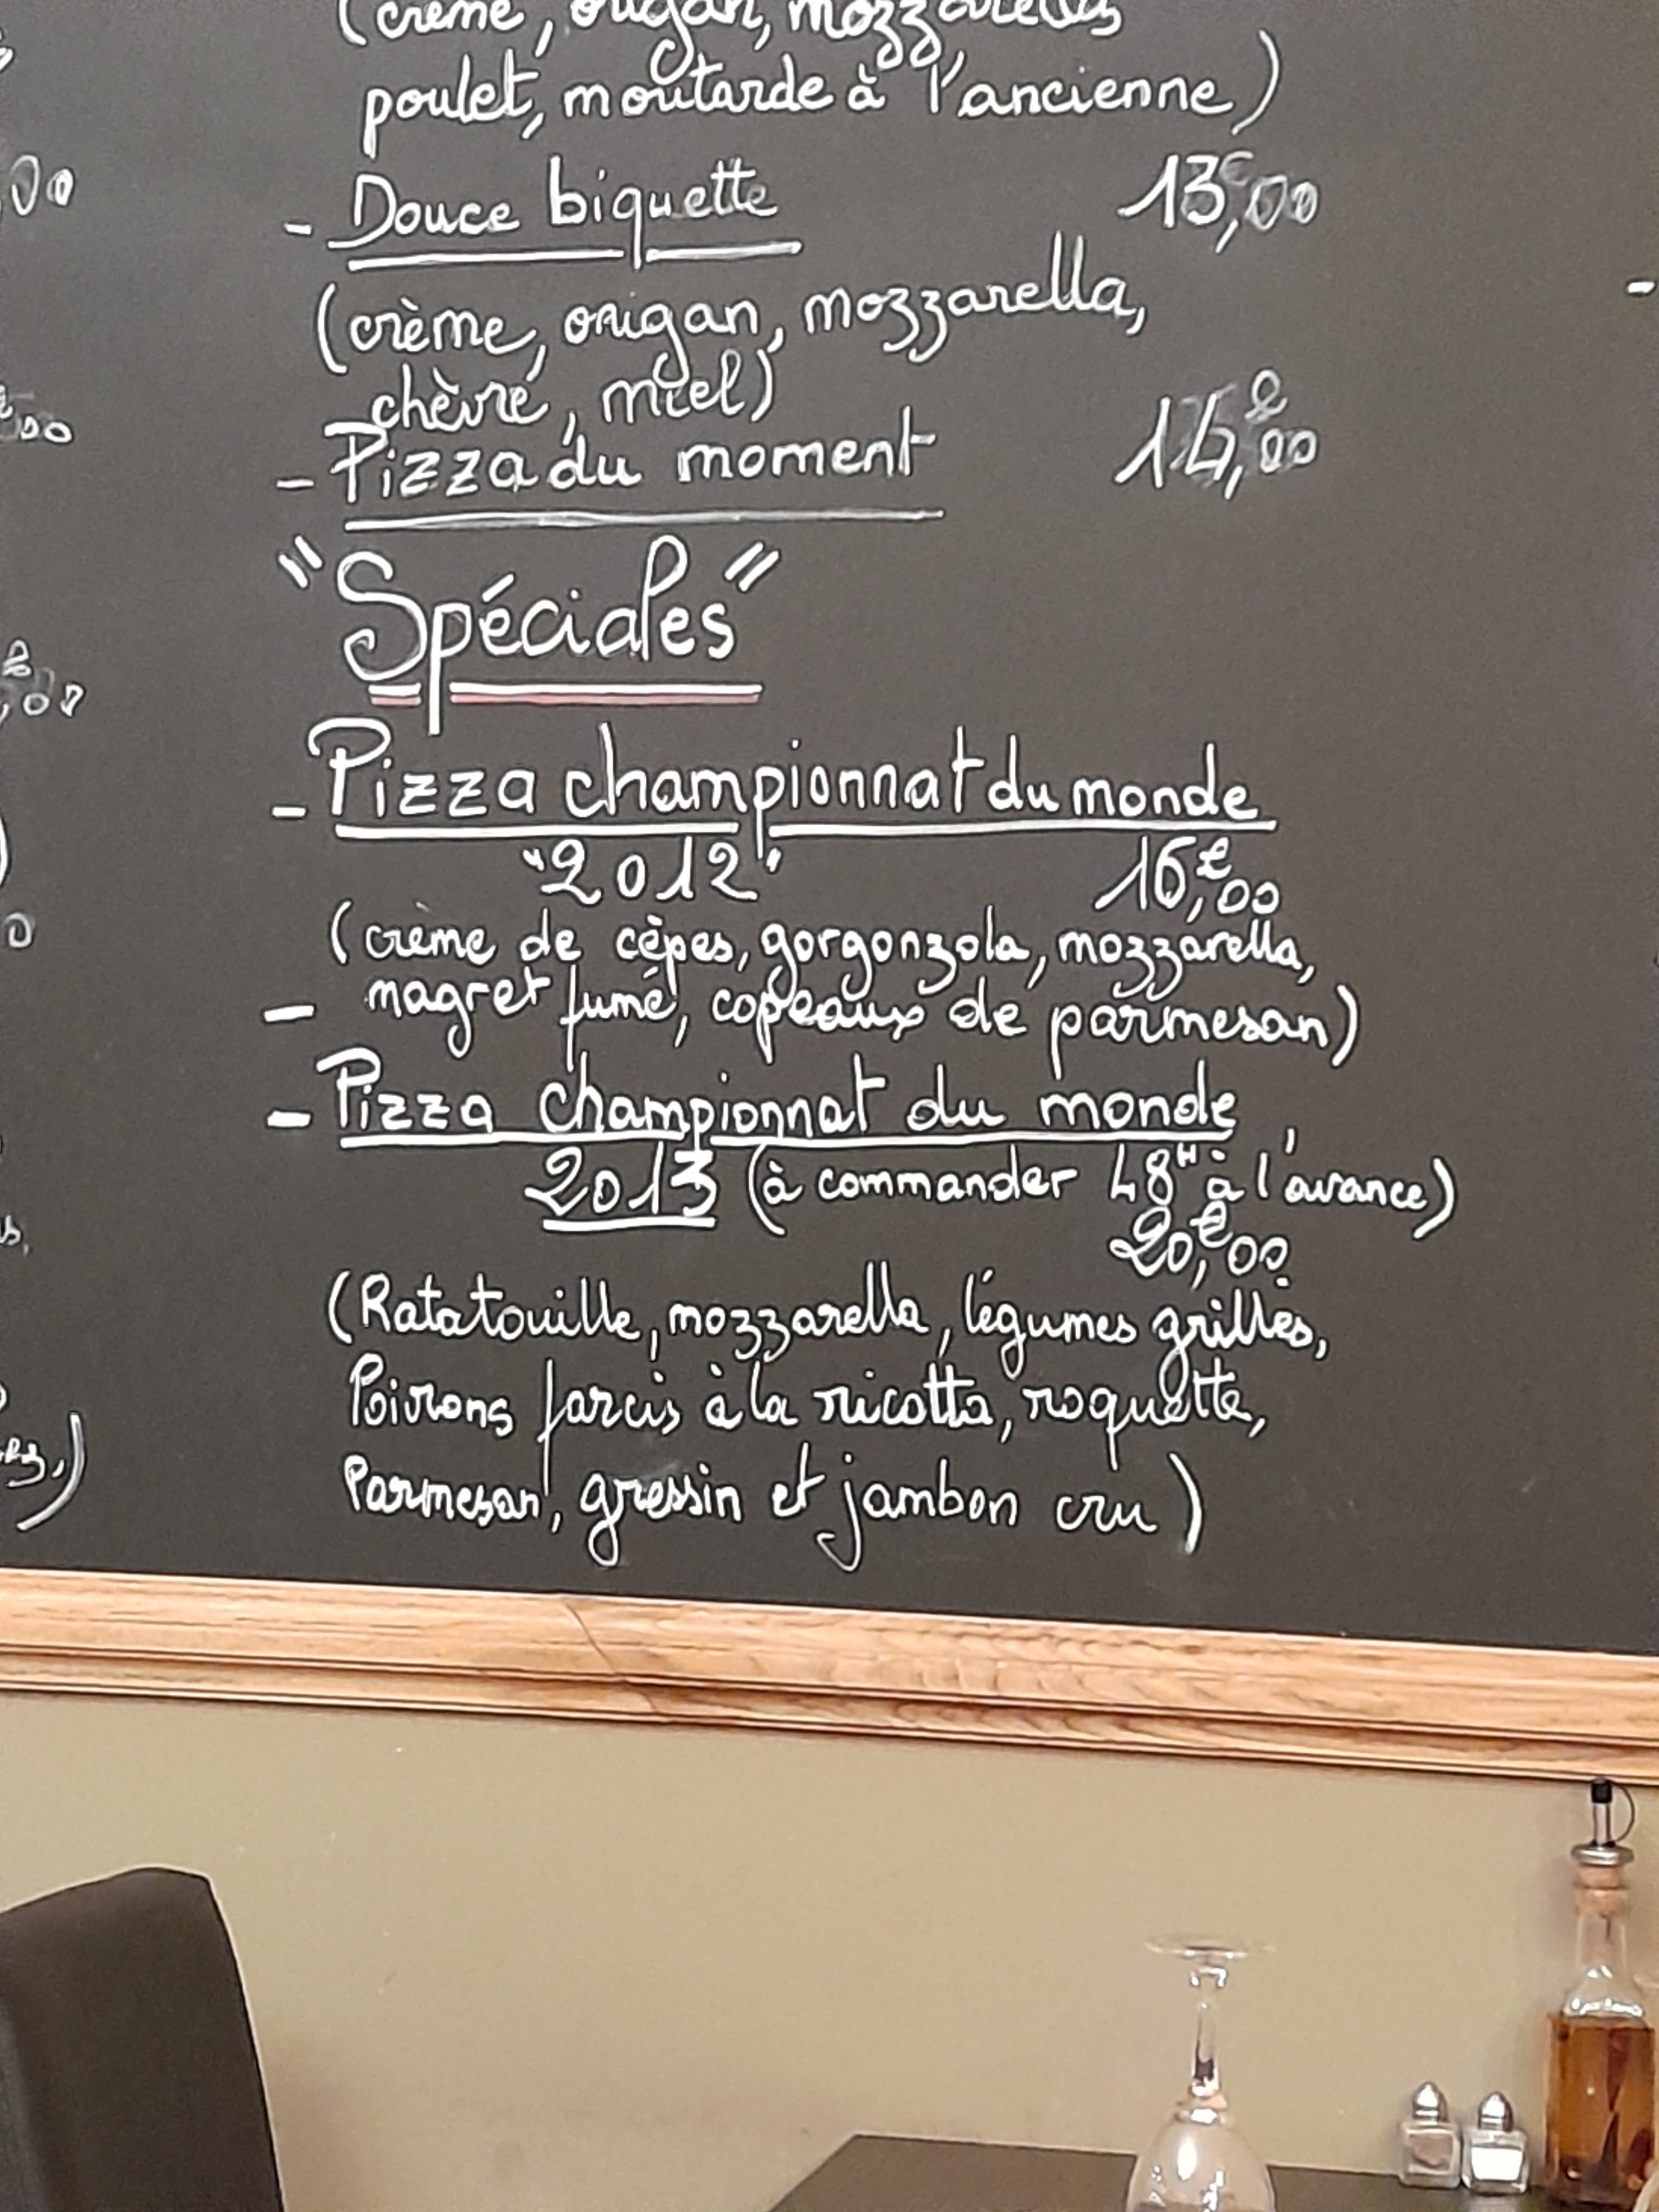 (crème, origan, mozzarella,
poulet, moutarde à l'ancienne)
- Douce biquette 13€,00
(crème, origan, mozzarella,
chèvre, miel)
- Pizza du moment 14€,00
"Spéciales"
- Pizza championnat du monde
"2012" 16€,00
(crème de cèpes, gorgonzola, mozzarella,
- magret fumé, copeaux de parmesan)
- Pizza championnat du monde
2013 (à commander 48H à l'avance)
20€,00
(Ratatouille, mozzarella, légumes grillés,
Poivrons farcis à la ricotta, roquette,
Parmesan, gressin et jambon cru)